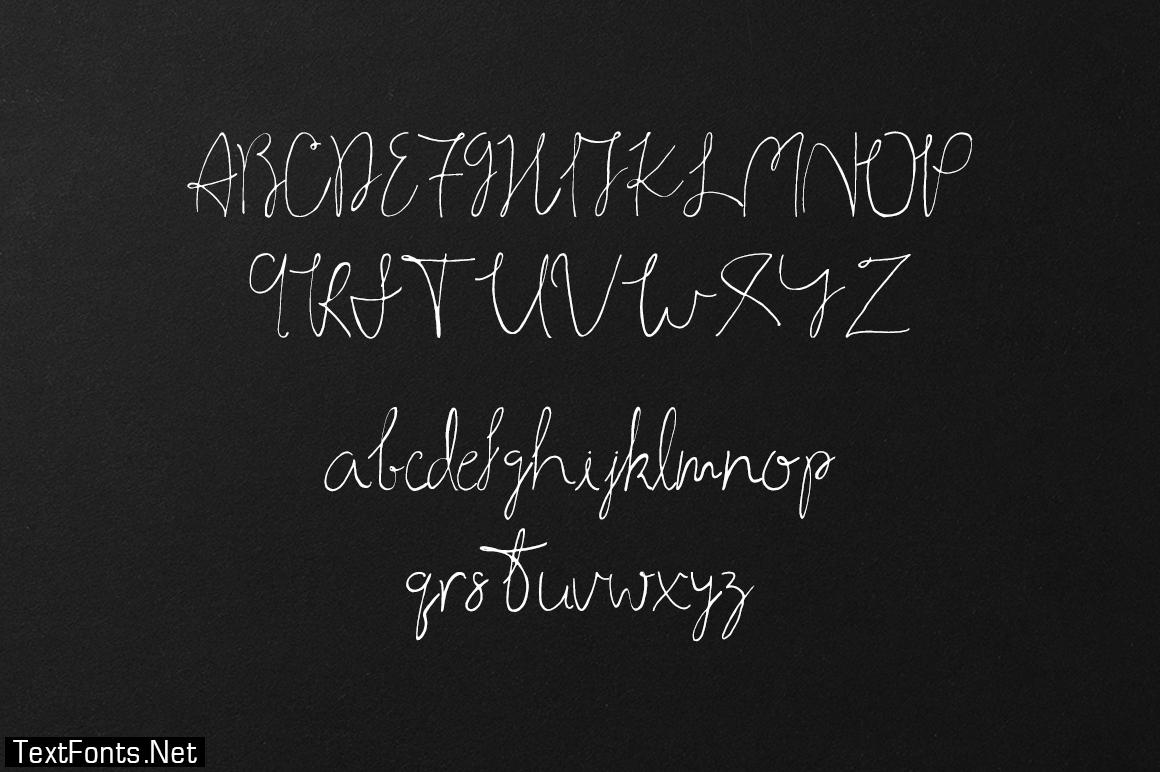 ABCDEFGHIJKLMNOP
QRSTUVWXYZ
abcdefghijklmnop
qrstuvwxyz
TextFonts.Net